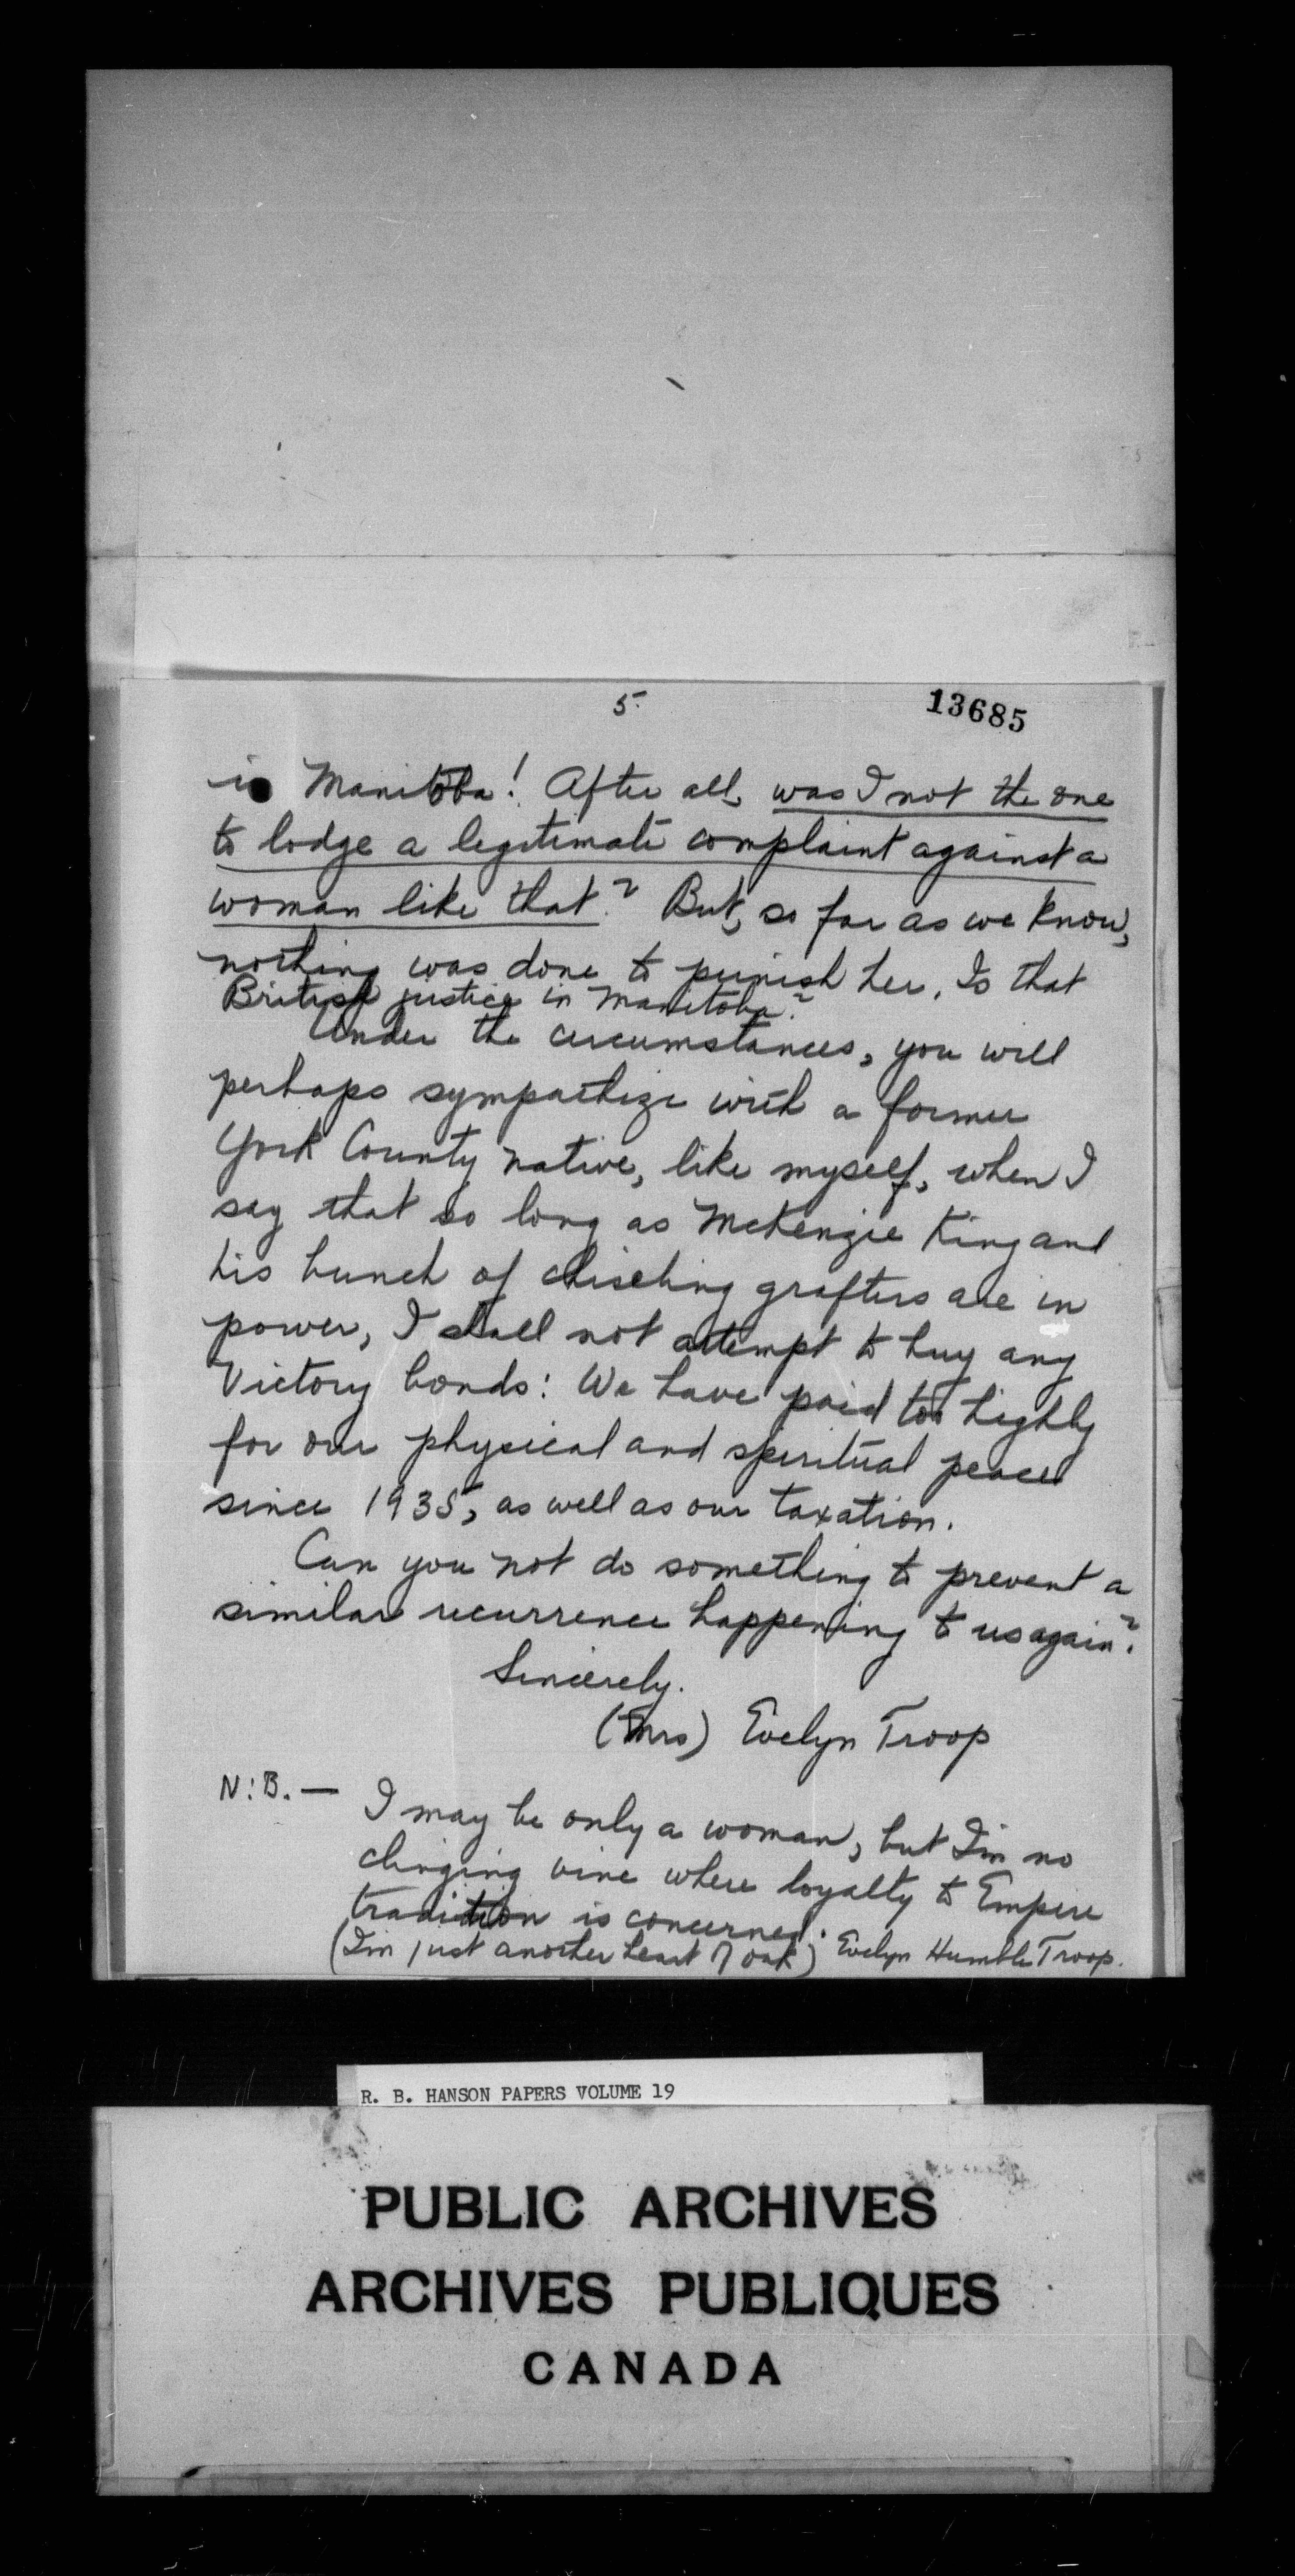 5.
13685
in Manitoba! After all, was I not the one
to lodge a legitimate complaint against a
woman like that? But, so far as we know,
nothing was done to punish her. Is that
British justice in Manitoba?
Under the circumstances, you will
perhaps sympathize with a former
York County native, like myself, when I
say that so long as McKenzie King and
his bunch of chiseling grafters are in
power, I shall not attempt to buy any
Victory bonds: We have paid too highly
for our physical and spiritual peace
since 1935, as well as our taxation.
Can you not do something to prevent a
similar recurrence happening to us again?
Sincerely.
(Mrs) Evelyn Troop
N.B. — I may be only a woman, but I'm no
clinging vine where loyalty to Empire
tradition is concerned.
(I'm just another heart of oak) Evelyn Humble Troop.
R. B. HANSON PAPERS VOLUME 19
PUBLIC ARCHIVES
ARCHIVES PUBLIQUES
CANADA